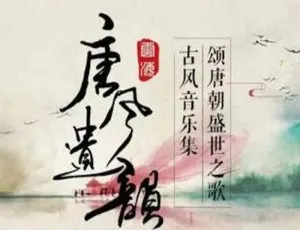 唐风遗韻
颂唐朝盛世之歌
古风音乐集